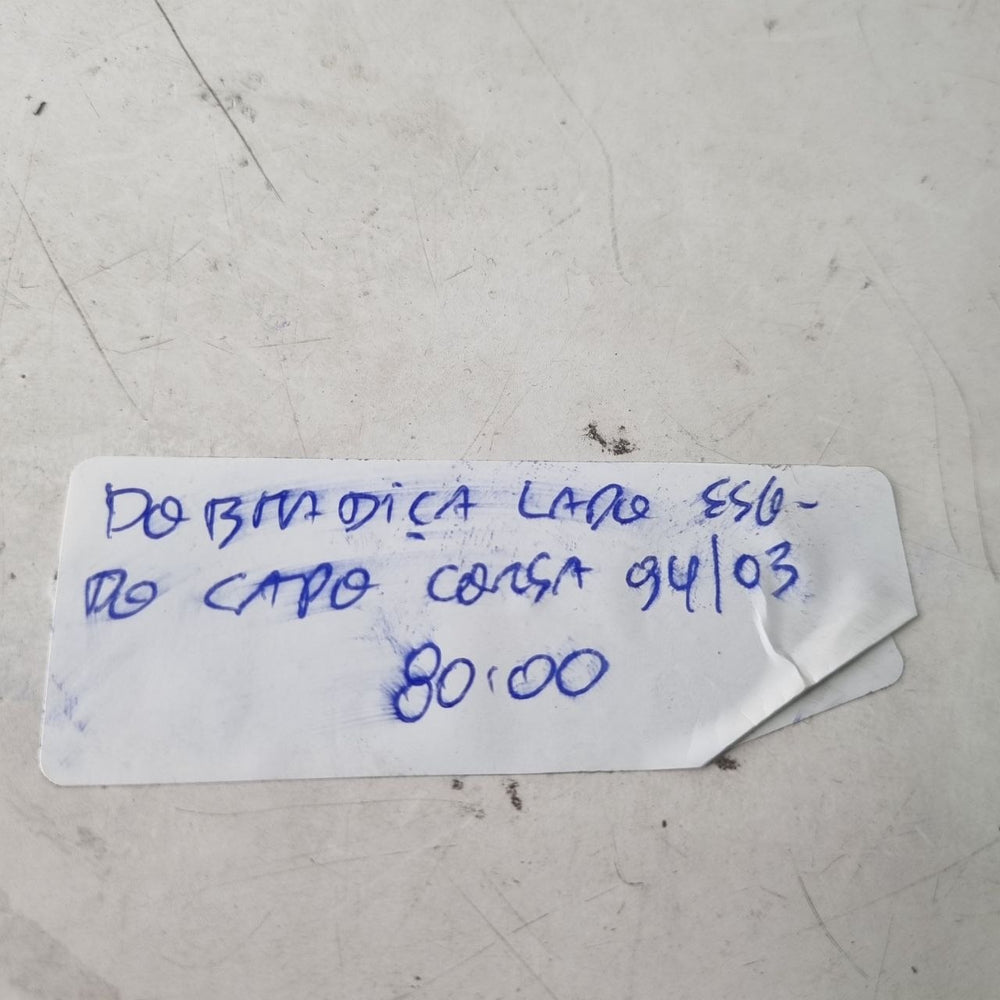 DOBRADIÇA LADO ESQ-
DO CAPO CORSA 94/03
80,00